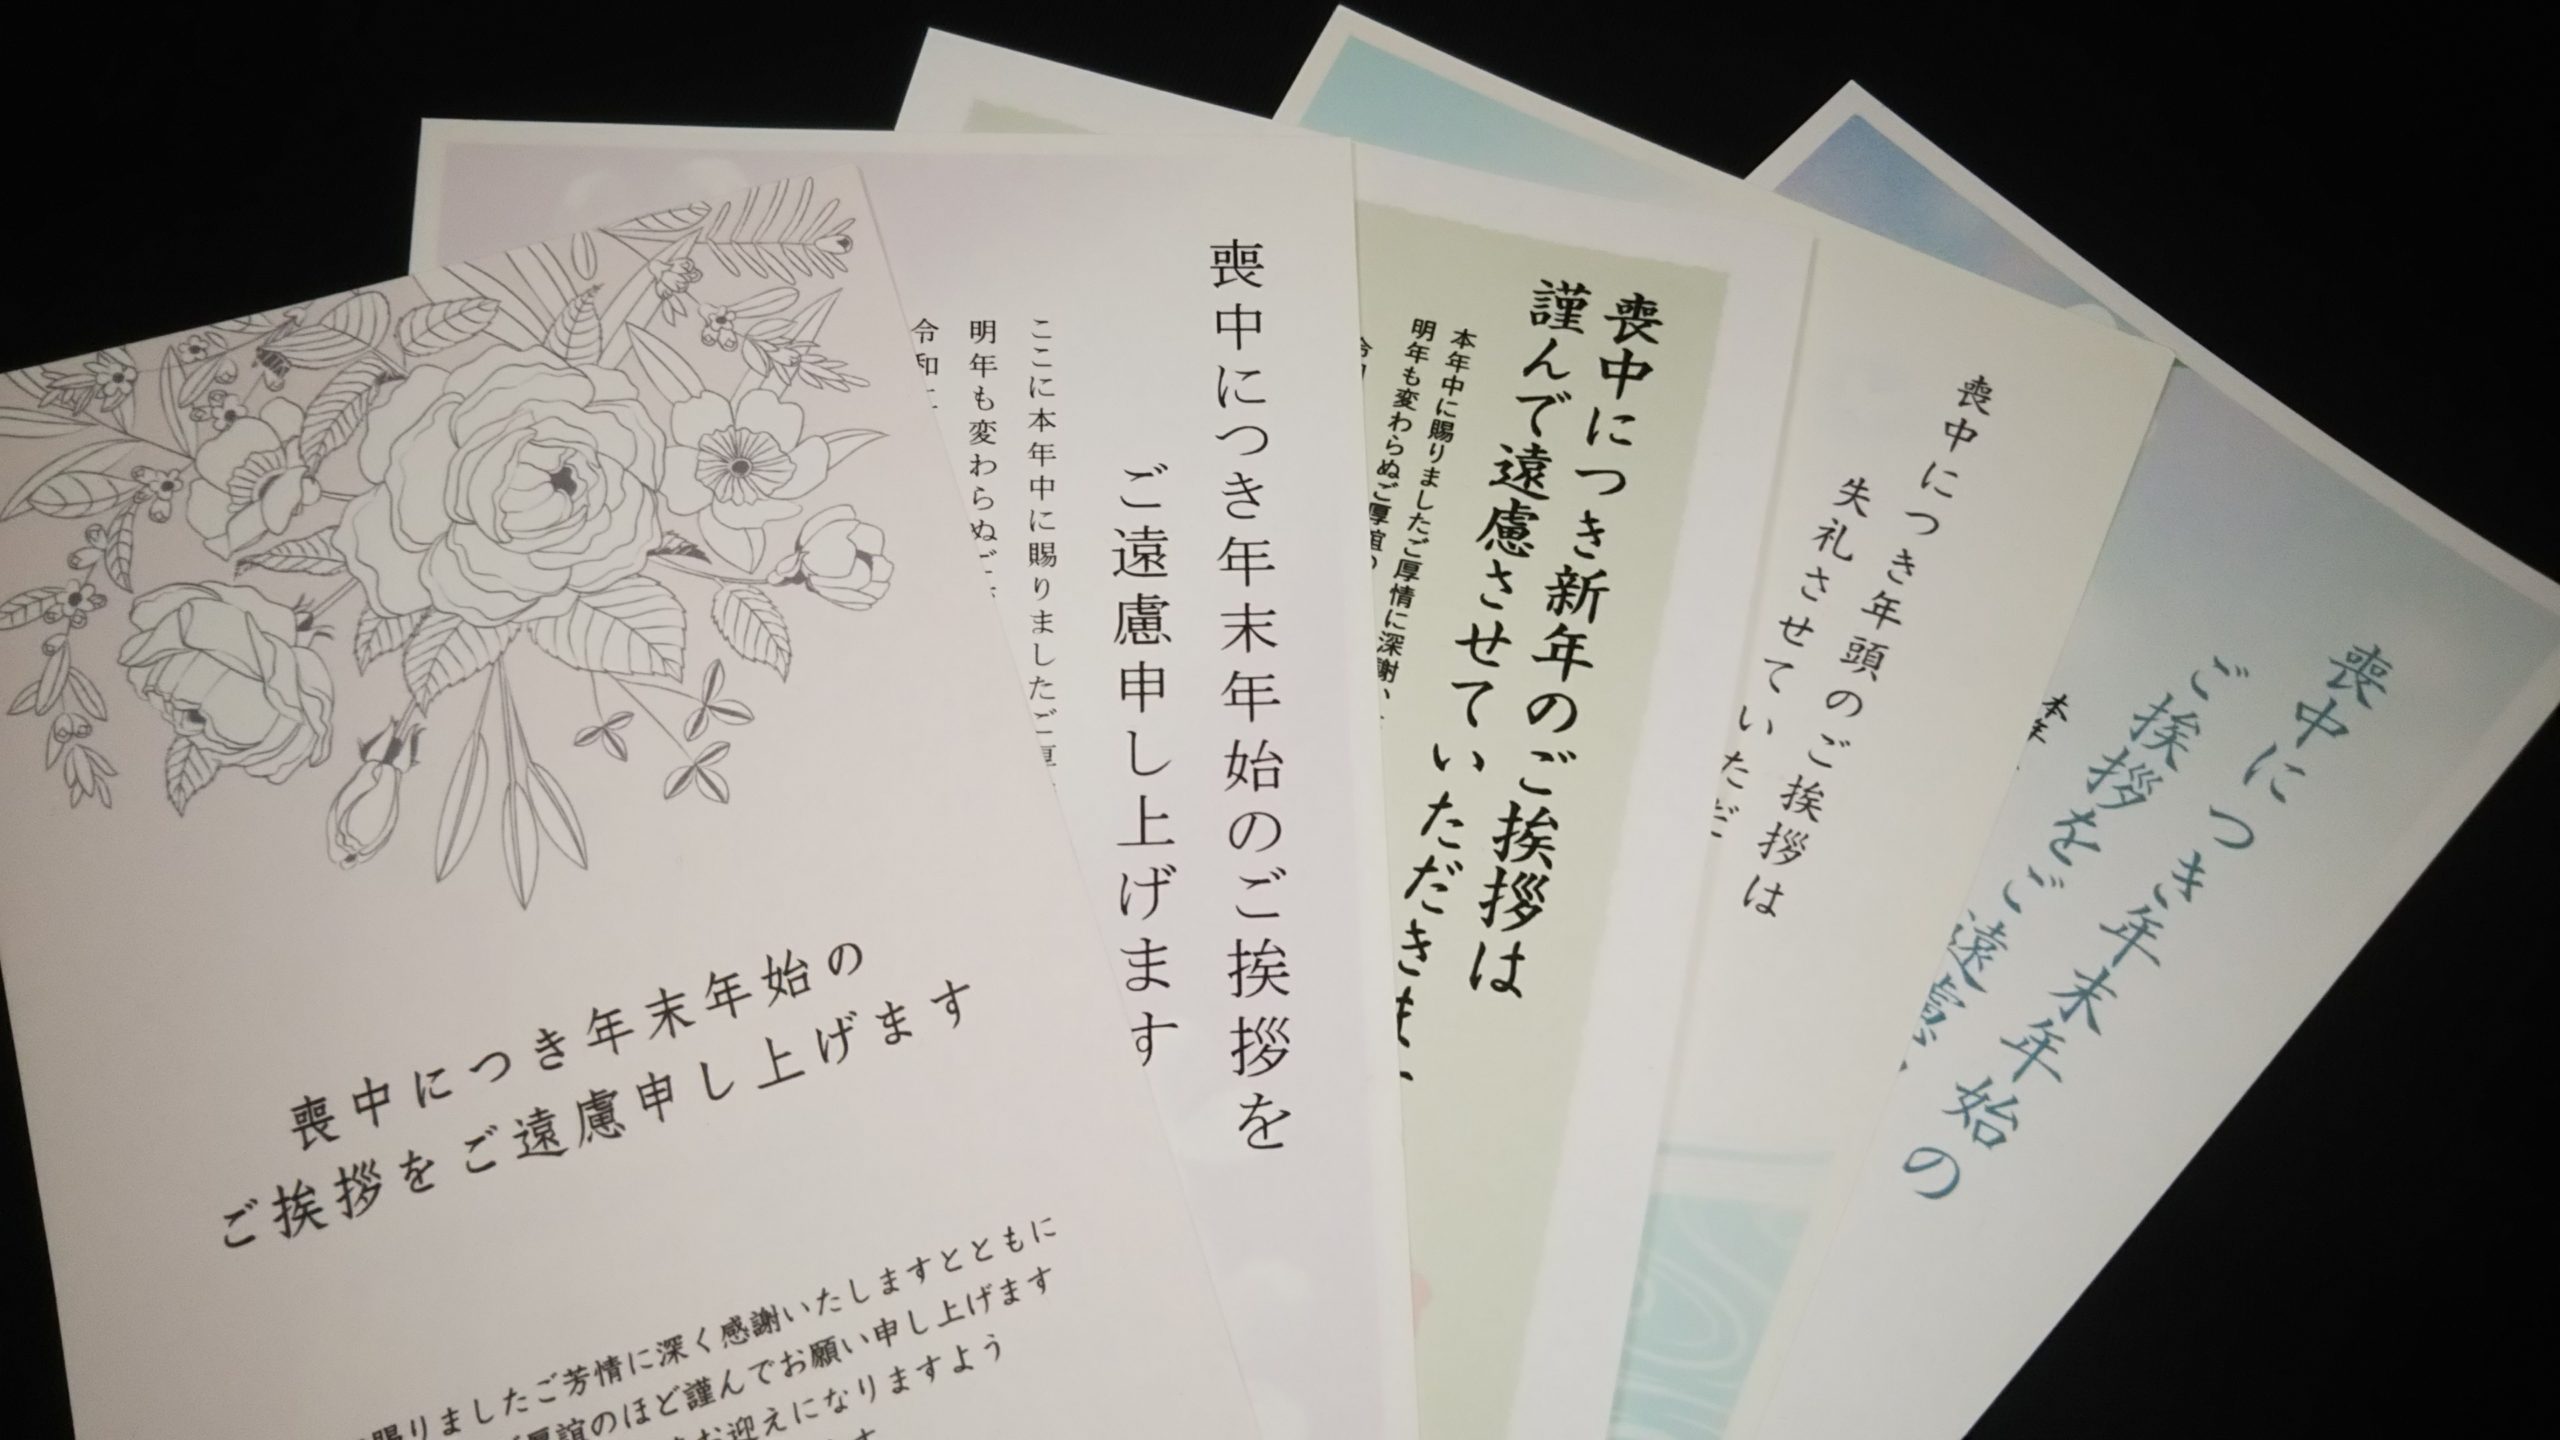 喪中につき年末年始の
ご挨拶をご遠慮申し上げます
賜りましたご芳情に深く感謝いたしますとともに
厚誼のほど謹んでお願い申し上げます
お迎えになりますよう
喪中につき年末年始のご挨拶を
ご遠慮申し上げます
ここに本年中に賜りましたご
明年も変わらぬご
令和
喪中につき新年のご挨拶は
謹んで遠慮させていただきま
本年中に賜りましたご厚情に深謝い
明年も変わらぬご厚誼
喪中につき年頭のご挨拶は
失礼させていただ
喪中につき年末年始の
ご挨拶をご遠慮
本年